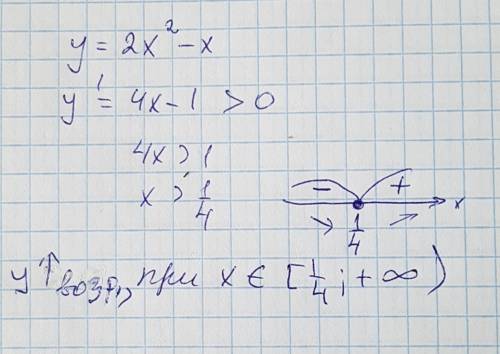 y = 2x² - x
y' = 4x - 1 > 0
4x > 1
x > 1/4
- + x
1/4
y↑ возр, при x ∈ [1/4; +∞)